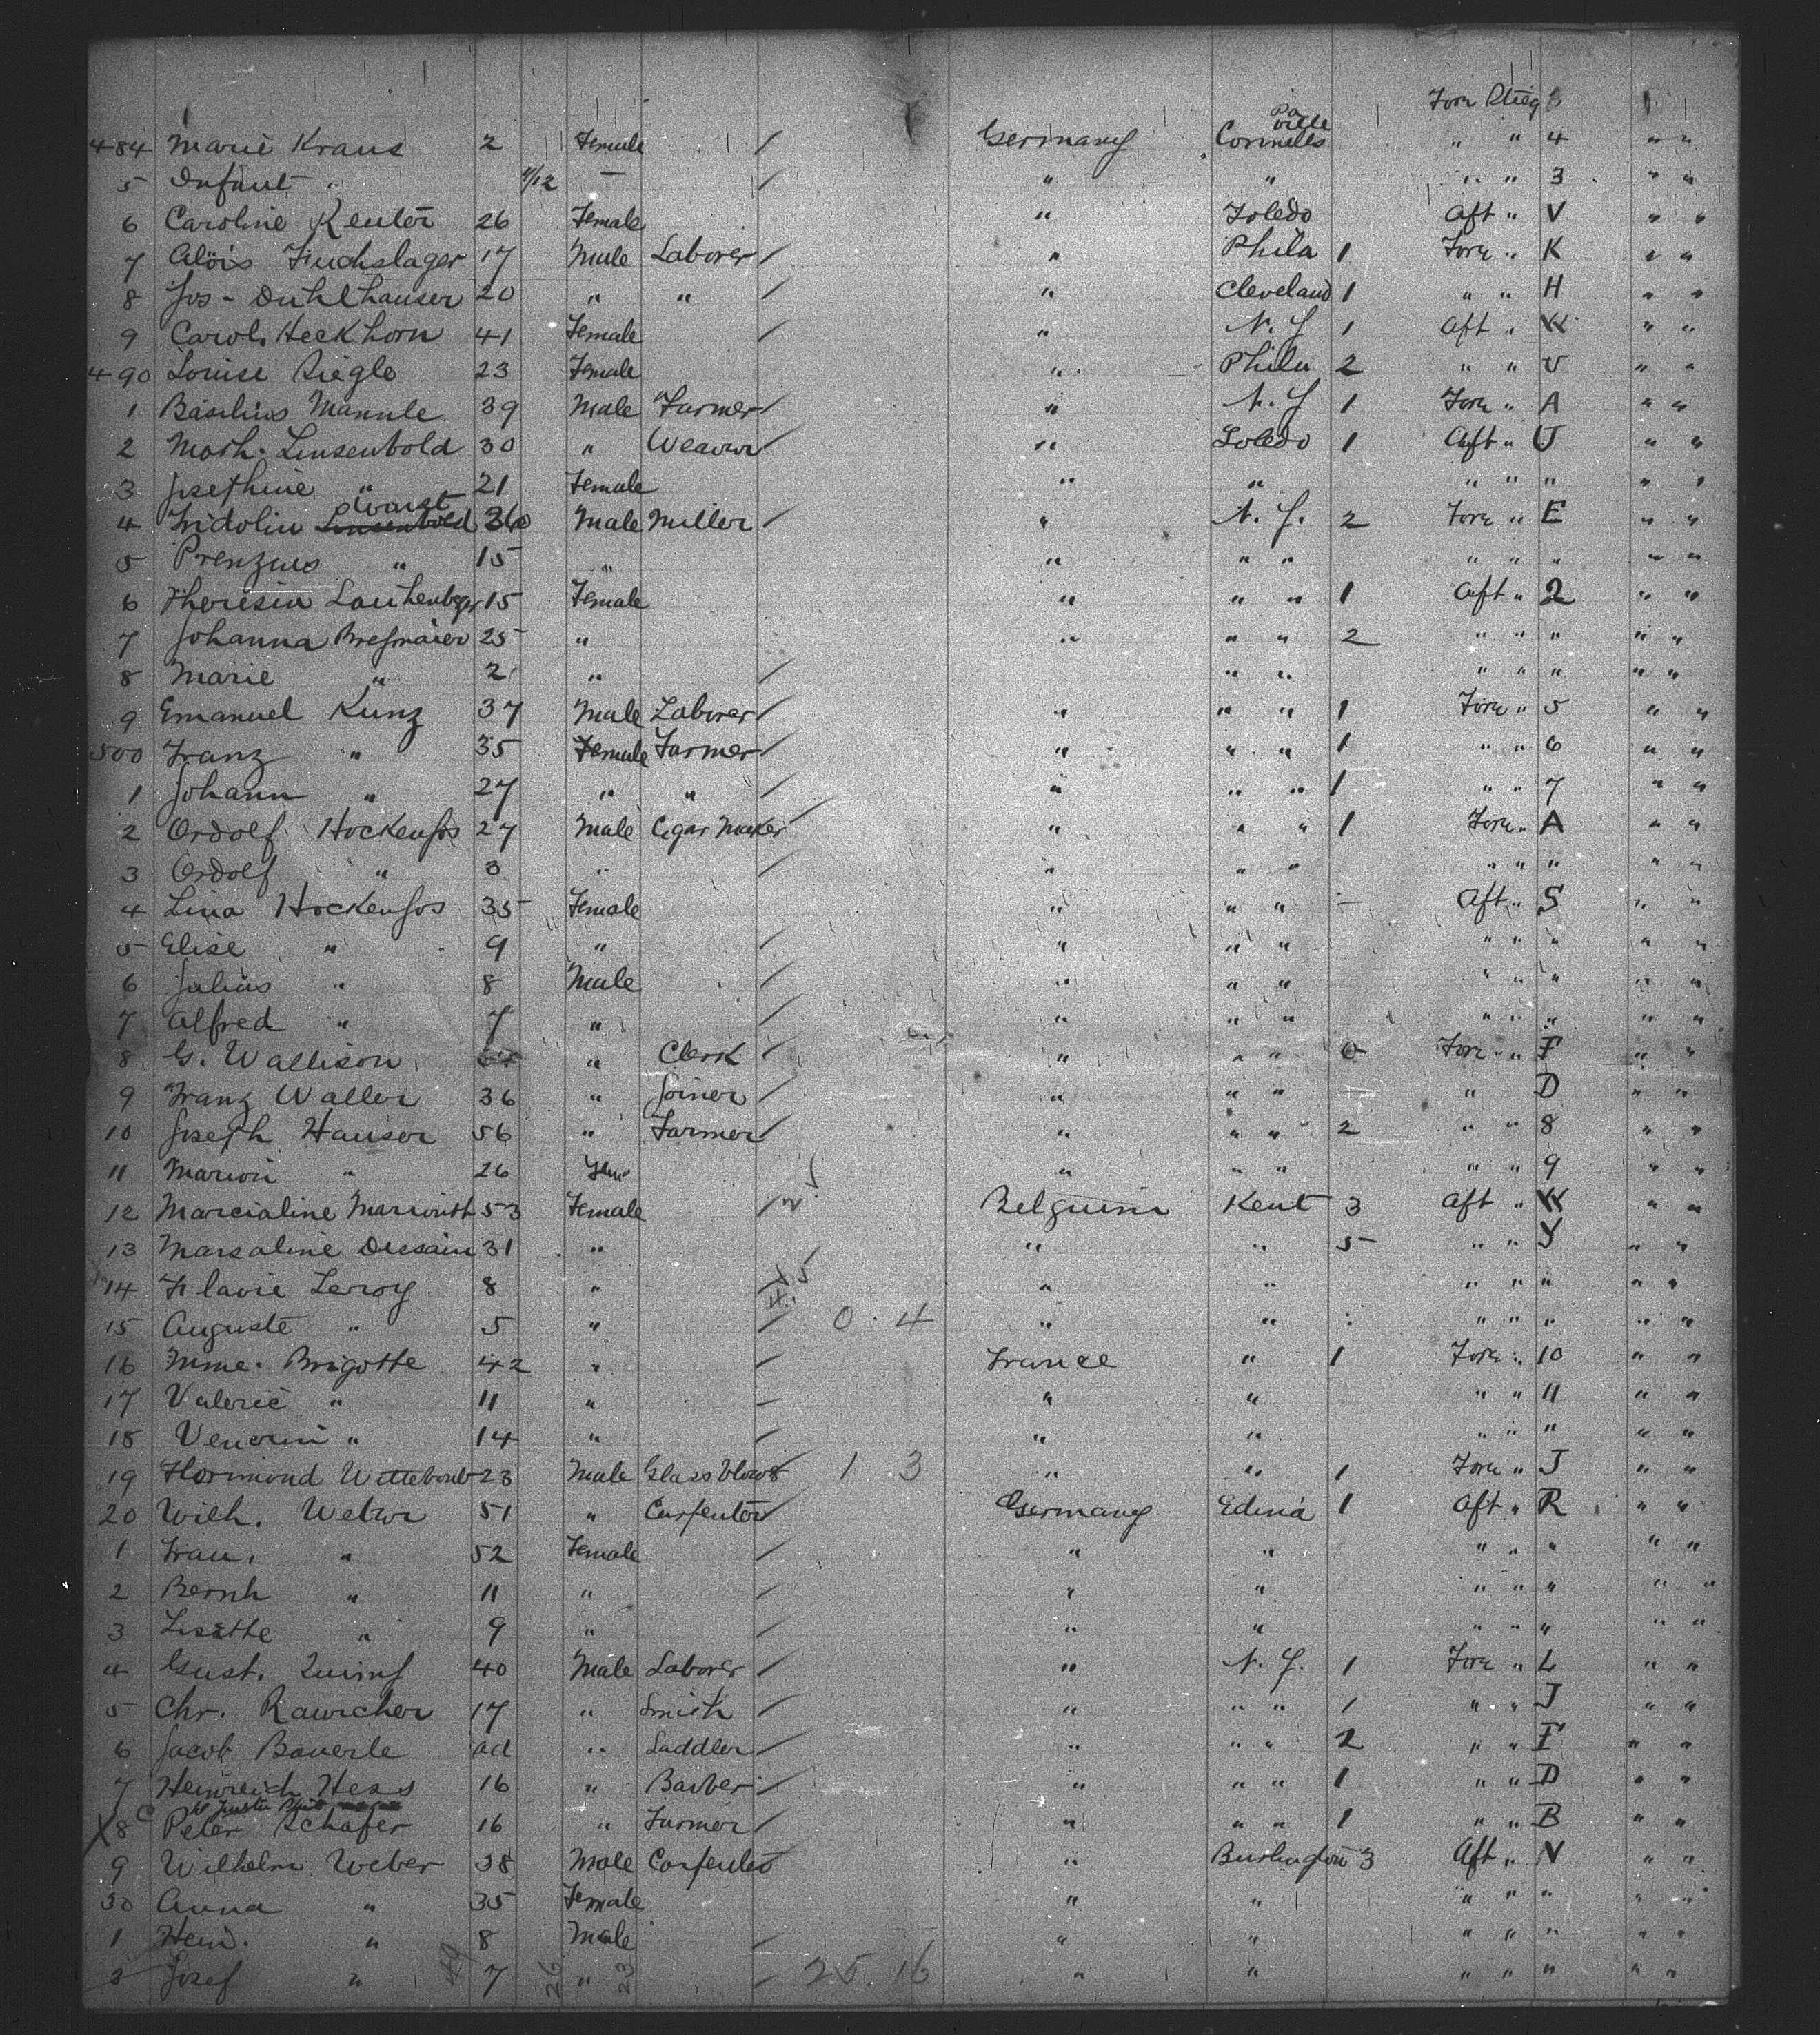 Fore Stieg
Pa
ville
484 Marie Kraus 2 Female / Germany Connells " " 4 " "
5 Infant " 11/12 — / " " " " 3 " "
6 Caroline Reuter 26 Female " Toledo Aft " V " "
7 Alois Fuchslager 17 Male Laborer / " Phila 1 Fore " K " "
8 Jos - Duhlhauser 20 " " / " Cleveland 1 " " H " "
9 Carol. Heckhorn 41 Female / " N. Y 1 Aft " W " "
490 Louise Riegle 23 Female " Phila 2 " " U " "
1 Basilius Mannle 39 Male Farmer / " N. Y 1 Fore " A " "
2 Math. Linsenbold 30 " Weaver / " Toledo 1 Aft " U " "
3 Josephine " 21 Female " " " " " " "
4 Fridolin 36 Male Miller / " N. Y. 2 Fore " E " "
5 " 15 " " " " " " " " "
6 Theresia 15 Female " " " 1 Aft " 2 " "
7 Johanna 25 " " " " 2 " " " " "
8 Marie " 2 " / " " " " " " "
9 Emanuel Kunz 37 Male Laborer / " " " 1 Fore " 5 " "
500 Franz " 35 Female Farmer / " " " 1 " " 6 " "
1 Johann " 27 " " / " " " 1 " " 7 " "
2 Ordolf Hockenjos 27 Male Cigar Maker / " " " 1 Fore " A " "
3 Ordolf " 3 " / " " " " " " " "
4 Lina Hockenjos 35 Female " " " — Aft " S " "
5 Elise " 9 " / " " " " " " " "
6 Julius " 8 Male / " " " " " " " "
7 Alfred " 7 " / " " " " " " " "
8 G. Wallison " Clerk / " " " Fore " F " "
9 Franz Waller 36 " Joiner / " " " " D " "
10 Joseph Hauser 56 " Farmer / " " " 2 " " 8 " "
11 " 26 " " " " " 9 " "
12 Marcialine 53 Female / Belguim Kent 3 Aft " W " "
13 Marsaline Dessain 31 " " " 5 " " Y " "
14 Flavie Leroy 8 " / " " " " " " "
15 Auguste " 5 " / 0 . 4 " " " " " " "
16 Mme. Brigotte 42 " / France " 1 Fore " 10 " "
17 Valerie " 11 " / " " " " 11 " "
18 " 14 " / " " " " " " "
19 Florimond 23 Male Glass blower / 1 3 " " 1 Fore " J " "
20 Wilh. Weber 51 " Carpenter / Germany Edina 1 Aft " R " "
1 Frau. " 52 Female / " " " " " " "
2 Bernh " 11 " / " " " " " " "
3 Lisette " 9 " / " " " " " " "
4 Gust. 40 Male Laborer / " N. Y. 1 Fore " L " "
5 Chr. Rawscher 17 " Smith / " " " 1 " " J " "
6 Jacob Bauerle ad " Saddler / " " " 2 " " F " "
7 Heinreich Hess 16 " Barber / " " " 1 " " D " "
X 8 C Peter Schafer 16 " Farmer / " " " 1 " " B " "
9 Wilhelm Weber 38 Male Carpenter " Burlington 3 Aft " N " "
30 Anna " 35 Female " " " " " " "
1 Hein. " 8 Male / " " " " " " "
3 Josef " 7 " / 25 16 " " " " " " "
49 26 23